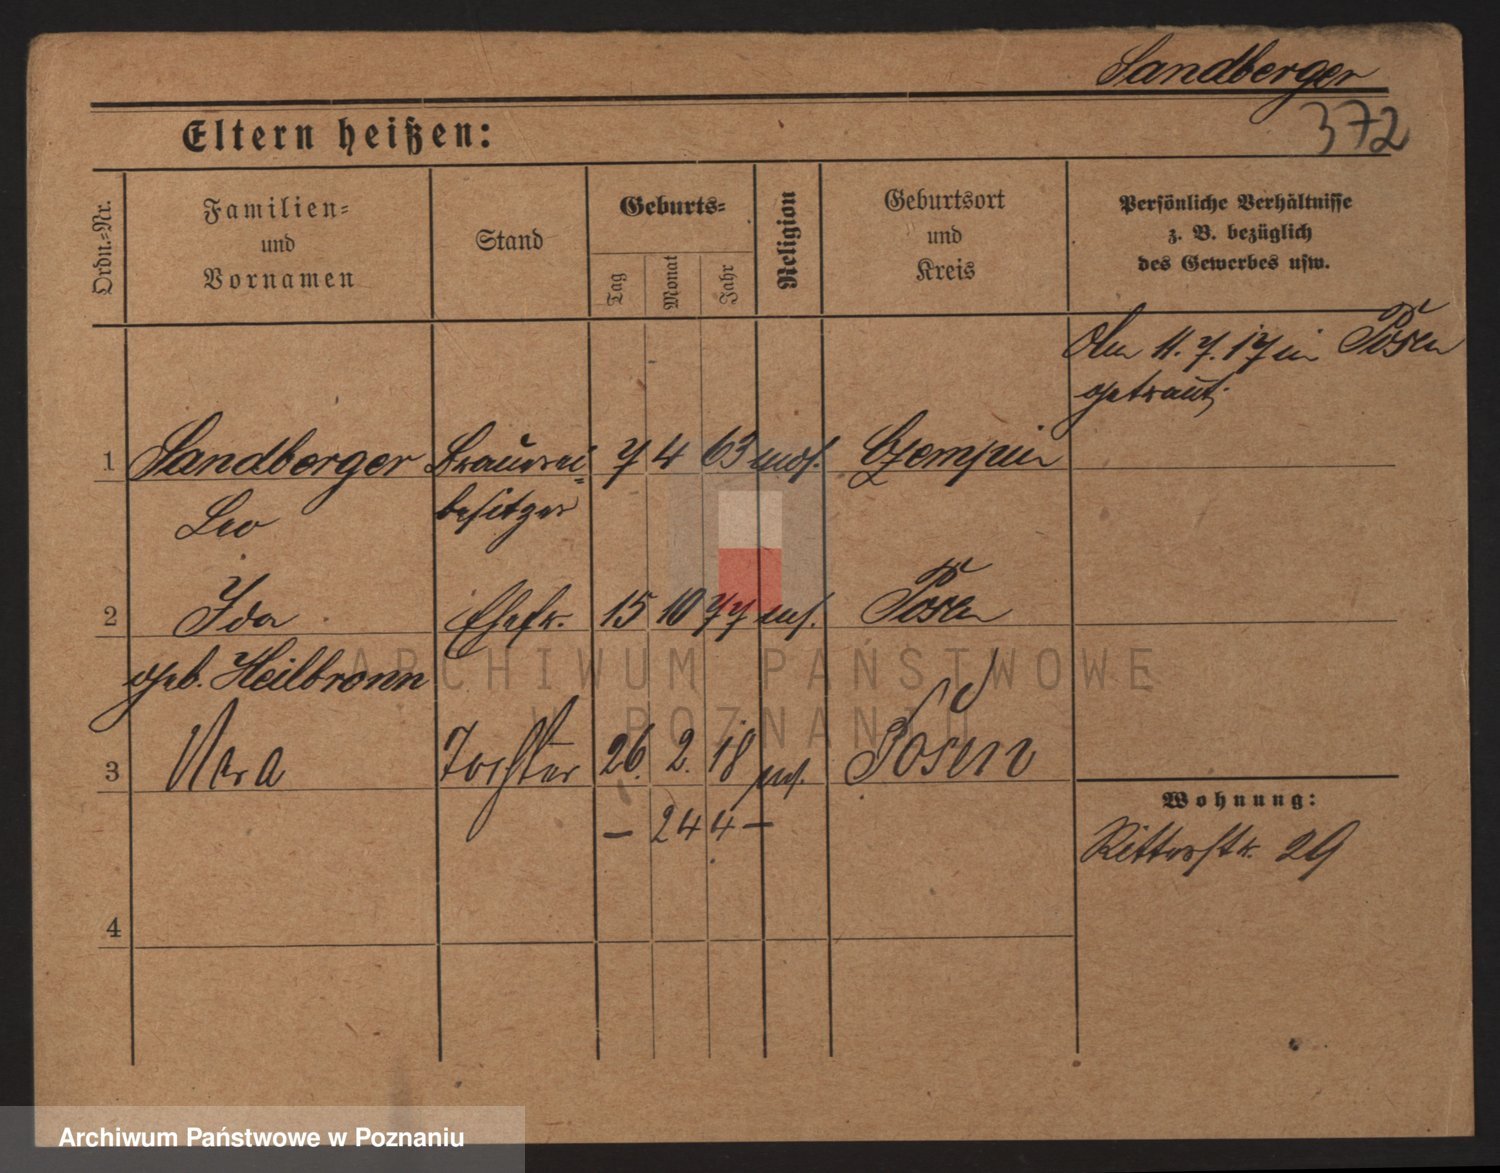 Sandberger
372
Eltern heißen:
Ordn.=Nr.
Familien=
und
Vornamen
Stand
Geburts=
Tag
Monat
Jahr
Religion
Geburtsort
und
Kreis
Persönliche Verhältnisse
z. B. bezüglich
des Gewerbes usw.
Am 11.7.17 in Posen
getraut.
1 Sandberger Brauerei= 7 4 63 mos. Czempin
Leo besitzer
2 Ida Ehefr. 15 10 77 mos. Posen
geb. Heilbronn
3 Vera Tochter 26. 2. 18 mos. Posen
– 244 –
Wohnung:
Ritterstr. 29
4
ARCHIWUM PAŃSTWOWE
W POZNANIU
Archiwum Państwowe w Poznaniu